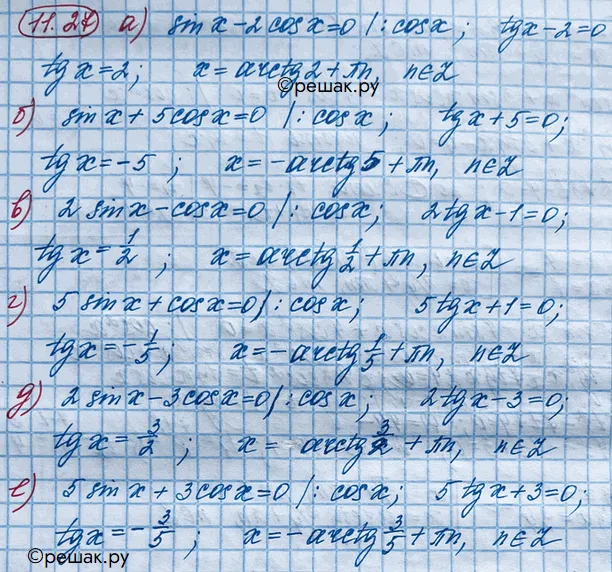 11.27 а) sin x - 2 cos x = 0 |: cos x ; tg x - 2 = 0
tg x = 2; x = arctg 2 + πn, n∈Z
©решак.ру
б) sin x + 5 cos x = 0 |: cos x ; tg x + 5 = 0;
tg x = -5 ; x = -arctg 5 + πn, n∈Z
в) 2 sin x - cos x = 0 |: cos x; 2 tg x - 1 = 0;
tg x = 1/2 ; x = arctg 1/2 + πn, n∈Z
г) 5 sin x + cos x = 0 |: cos x; 5 tg x + 1 = 0;
tg x = -1/5 ; x = -arctg 1/5 + πn, n∈Z
д) 2 sin x - 3 cos x = 0 |: cos x; 2 tg x - 3 = 0;
tg x = 3/2 ; x = arctg 3/2 + πn, n∈Z
е) 5 sin x + 3 cos x = 0 |: cos x; 5 tg x + 3 = 0;
tg x = -3/5 ; x = -arctg 3/5 + πn, n∈Z
©решак.ру